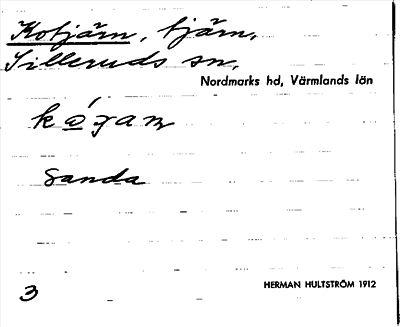 Kotjärn, tjärn,
Silleruds sn,
Nordmarks hd, Värmlands län
Sanda
3
HERMAN HULTSTRÖM 1912